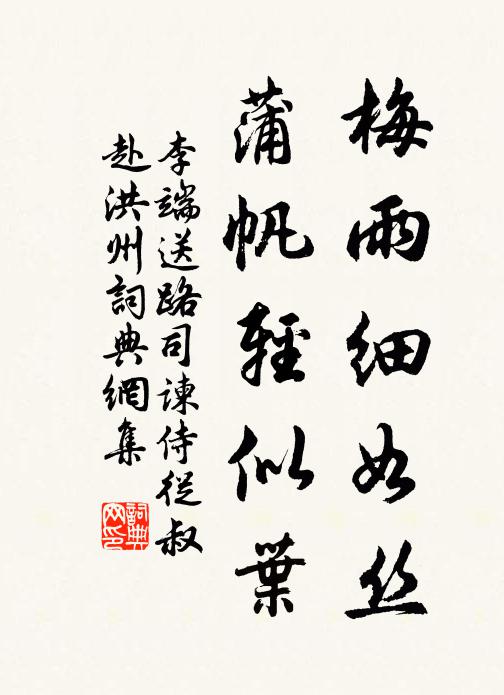 梅雨细如丝
蒲帆輕似葉
李端送路司諫侍從叔
赴洪州詞典網集
詞典
网印